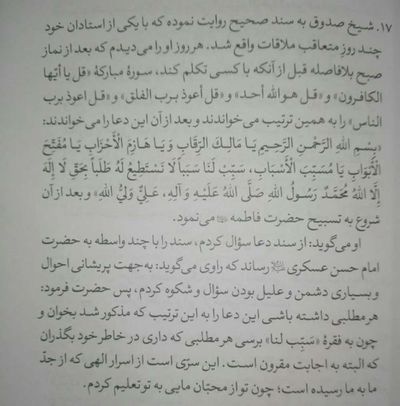 ۱۷. شیخ صدوق به سند صحیح روایت نموده که با یکی از استادان خود
چند روز متعاقب ملاقات واقع شد. هر روز او را می‌دیدم که بعد از نماز
صبح بلافاصله قبل از آنکه با کسی تکلم کند، سورهٔ مبارکهٔ «قل یا أیّها
الکافرون» و «قل هو الله أحد» و «قل أعوذ برب الفلق» و «قل اعوذ برب
الناس» را به همین ترتیب می‌خواندند و بعد از آن این دعا را می‌خواندند:
«بِسْمِ اللهِ الرَّحْمنِ الرَّحیمِ یَا مَالِکَ الرِّقَابِ وَ یَا هَازِمَ الْأَحْزَابِ یَا مُفَتِّحَ
الْأَبْوَابِ یَا مُسَبِّبَ الْأَسْبَابِ، سَبِّبْ لَنَا سَبَباً لَا نَسْتَطِیعُ لَهُ طَلَباً بِحَقِّ لَا إِلهَ
إِلَّا اللهُ مُحَمَّدٌ رَسُولُ اللهِ صَلَّی اللهُ عَلَیْهِ وَ آلِهِ، عَلِیٌّ وَلِیُّ اللهِ» و بعد از آن
شروع به تسبیح حضرت فاطمه می‌نمود.
او می‌گوید: از سند دعا سؤال کردم، سند را با چند واسطه به حضرت
امام حسن عسکری رساند که راوی می‌گوید: به جهت پریشانی احوال
و بسیاری دشمن و علیل بودن سؤال و شکوه کردم، پس حضرت فرمود:
هر مطلبی داشته باشی این دعا را به این ترتیب که مذکور شد بخوان و
چون به فقرهٔ «سَبِّب لنا» برسی هر مطلبی که داری در خاطر خود بگذران
که البته به اجابت مقرون است. این سرّی است از اسرار الهی که از جدّ
ما به ما رسیده است؛ چون تو از محبّان مایی به تو تعلیم کردم.